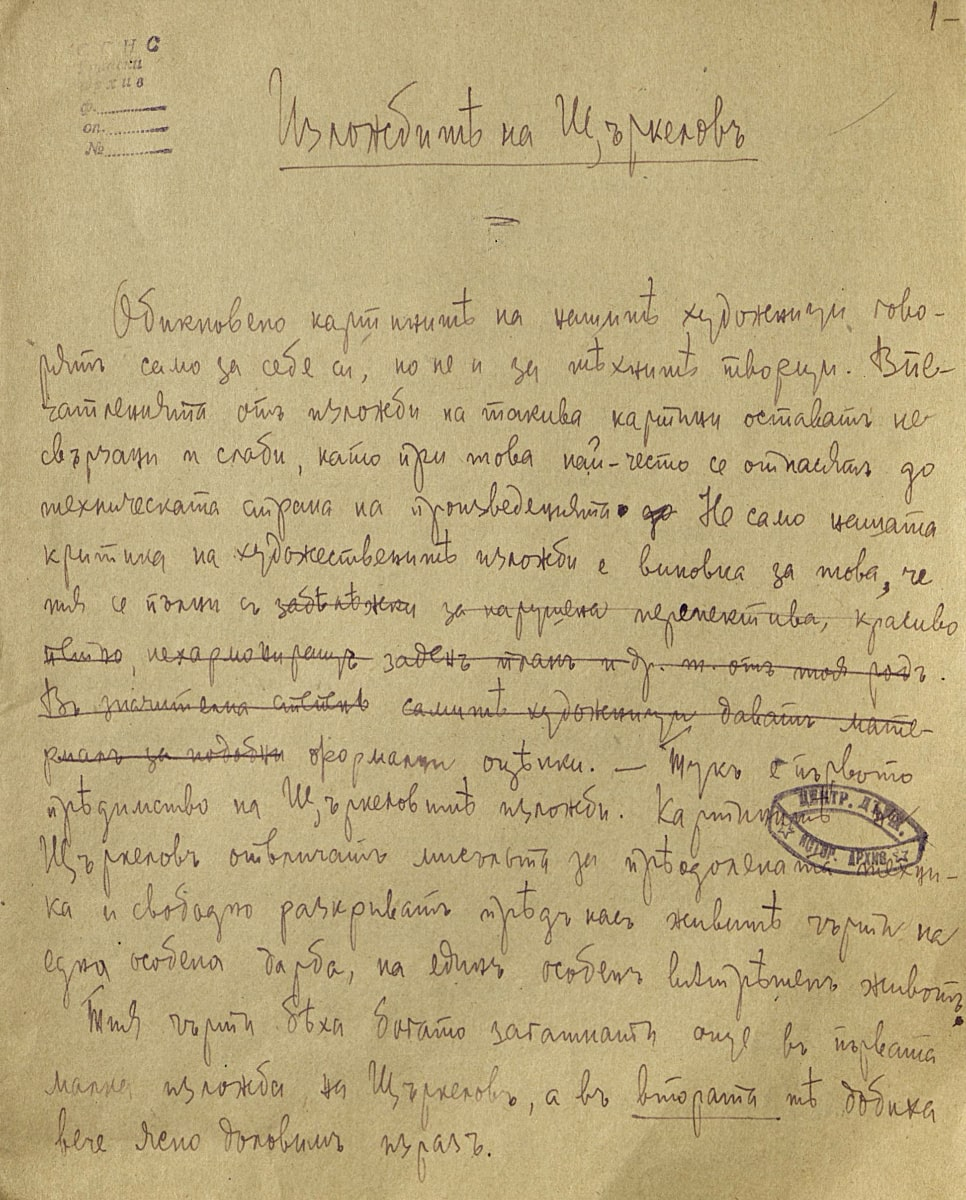 1-
С Г Н С
Архив
ф.
оп.
№
Изложбитѣ на Щъркеловъ
Обикновено картинитѣ на нашитѣ художници гово-
рятъ само за себе си, но не и за тѣхнитѣ творци. Впе-
чатленията отъ изложби на такива картини оставатъ не
свързани и слаби, като при това най-често се отнасятъ до
техническата страна на произведенията. до Не само нашата
критика на художественитѣ изложби е виновна за това, че
тя се пълни съ забѣлѣжки за нарушена перспектива, красиво
петно, нехармониращъ заденъ планъ и др. т. отъ тоя родъ.
Въ значителна степень самитѣ художници даватъ мате-
риалъ за подобни формални оцѣнки. — Тукъ е първото
прѣдимство на Щъркеловитѣ изложби. Картинитѣ на
Щъркеловъ отвличатъ мисъльта за прѣодолената техни-
ка и свободно разкриватъ прѣдъ насъ живитѣ чърти на
една особена дарба, на единъ особенъ вѫтрѣшенъ животъ.
Тия чърти бѣха богато загатнати още въ първата
малка изложба на Щъркеловъ, а въ втората тѣ добиха
вече ясно доловимъ изразъ.
ЦЕНТР. ДЪРЖ.
ИСТОР. АРХИВ